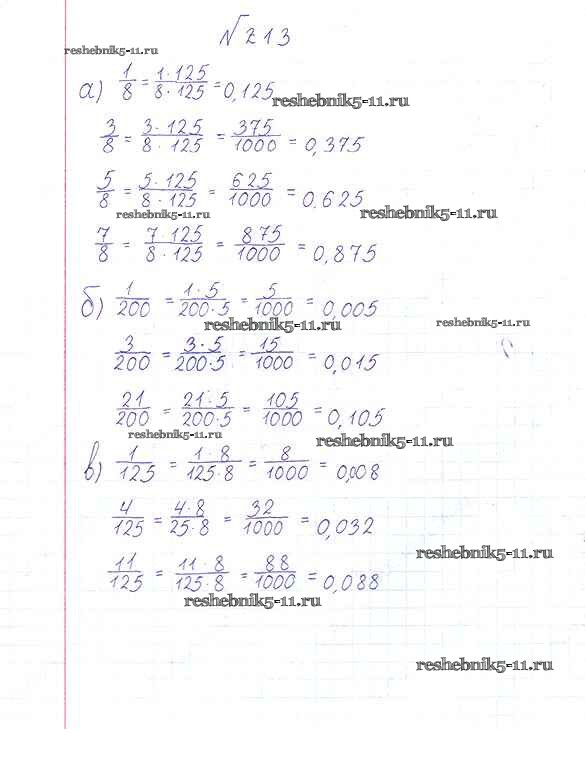 № 213
reshebnik5-11.ru
а) 1/8 = 1·125/8·125 = 0,125
reshebnik5-11.ru
3/8 = 3·125/8·125 = 375/1000 = 0,375
5/8 = 5·125/8·125 = 625/1000 = 0.625
reshebnik5-11.ru reshebnik5-11.ru
7/8 = 7·125/8·125 = 875/1000 = 0,875
б) 1/200 = 1·5/200·5 = 5/1000 = 0,005
reshebnik5-11.ru reshebnik5-11.ru
3/200 = 3·5/200·5 = 15/1000 = 0,015
21/200 = 21·5/200·5 = 105/1000 = 0,105
reshebnik5-11.ru reshebnik5-11.ru
в) 1/125 = 1·8/125·8 = 8/1000 = 0,008
4/125 = 4·8/25·8 = 32/1000 = 0,032
reshebnik5-11.ru
11/125 = 11·8/125·8 = 88/1000 = 0,088
reshebnik5-11.ru
reshebnik5-11.ru